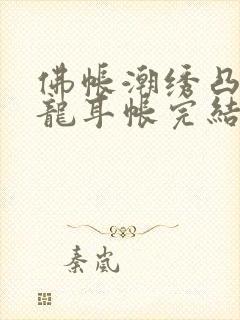 佛帐潮绣凸
龍耳帐完結
秦岚